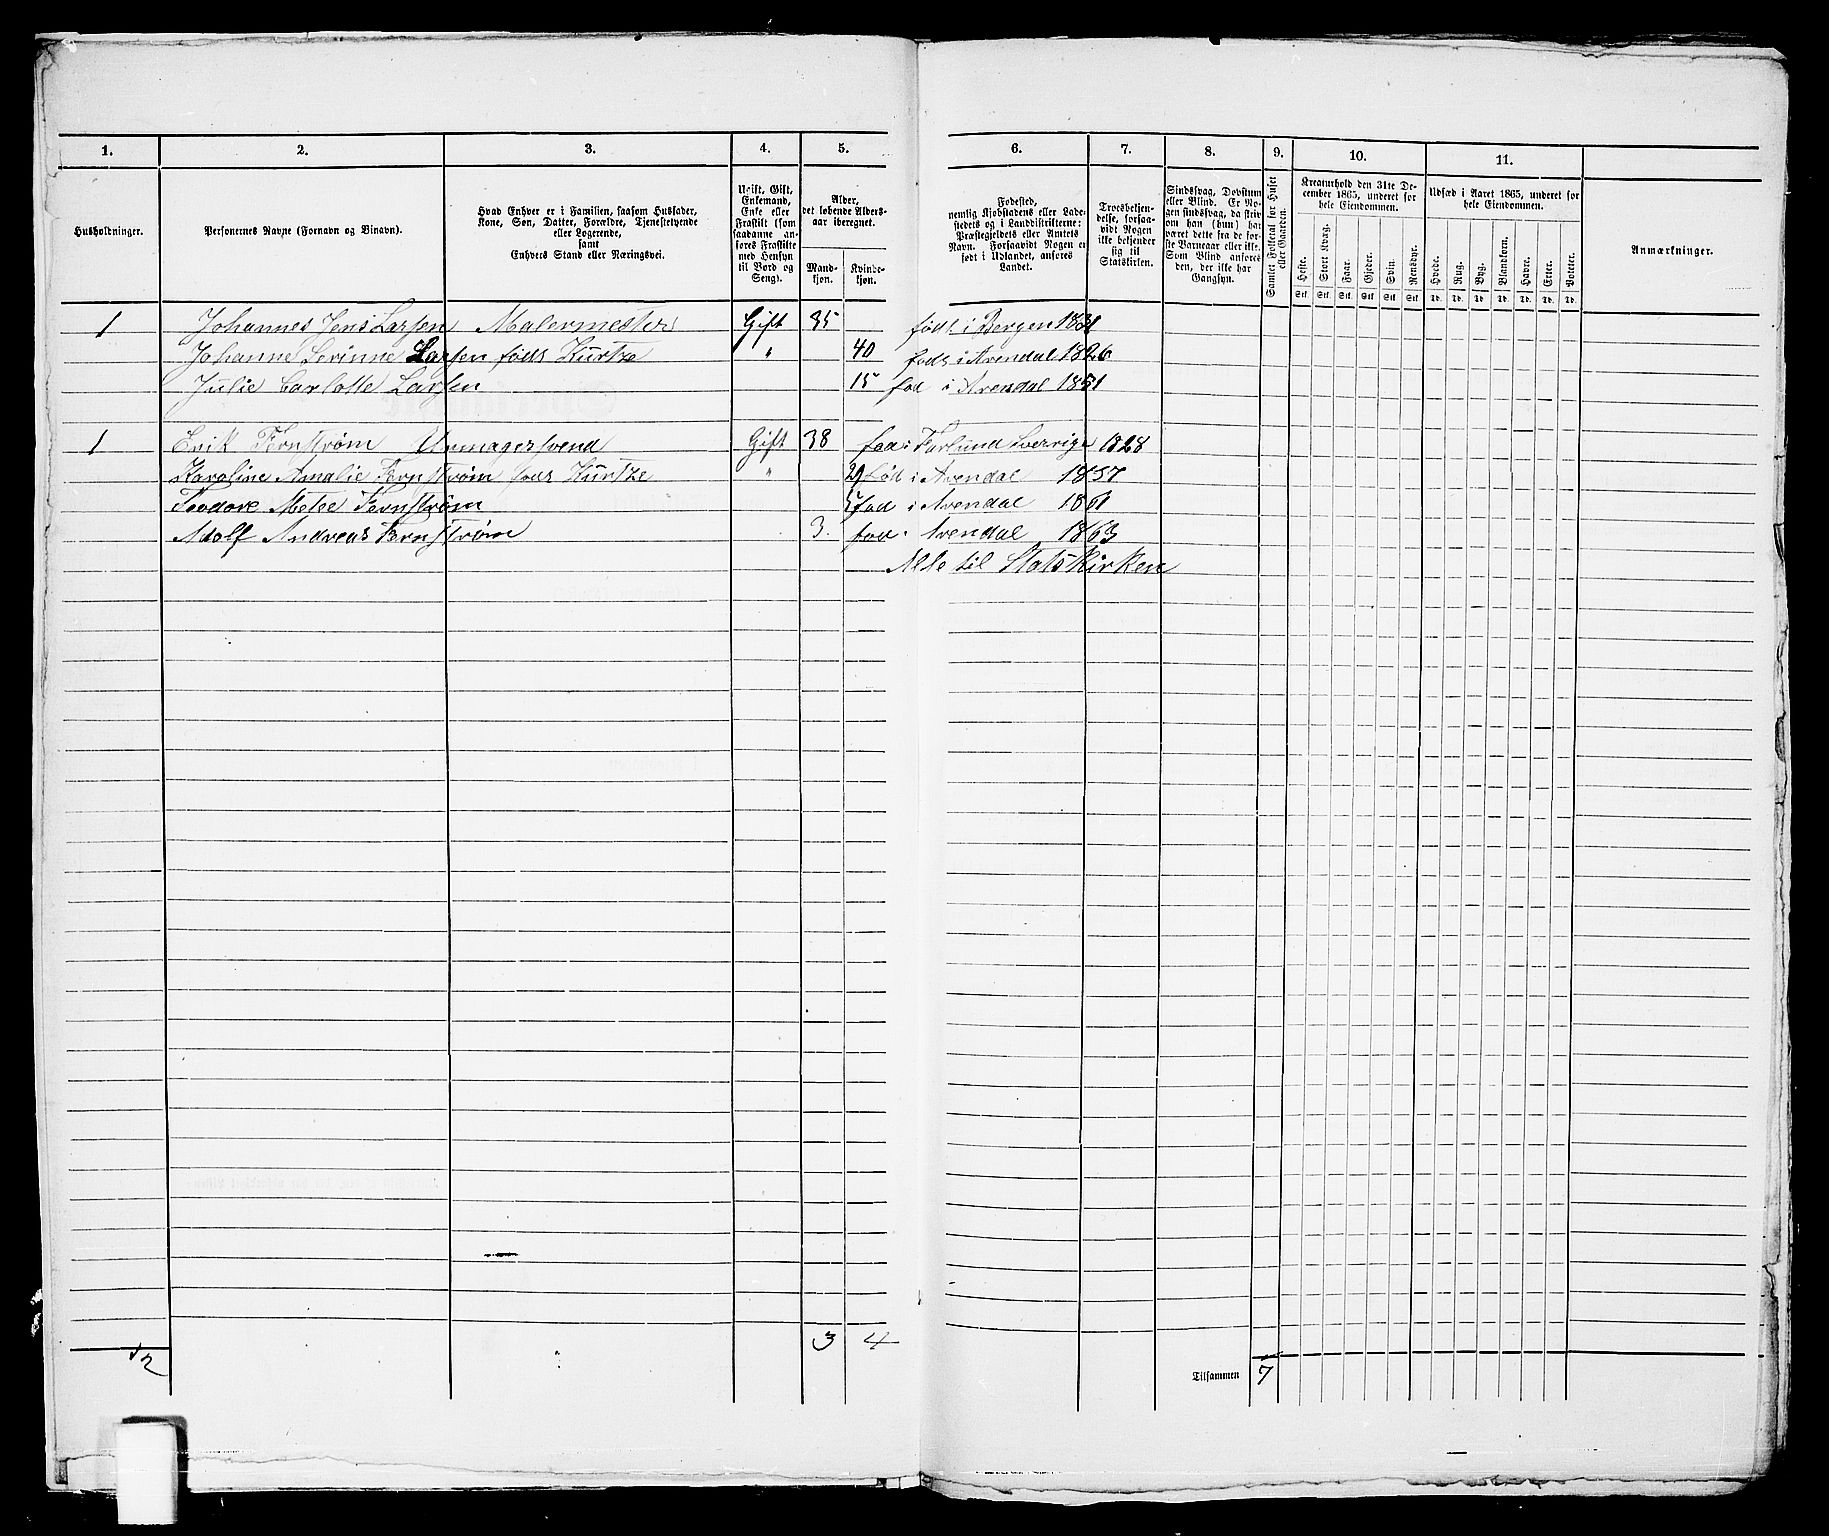 1. 2. 3. 4. 5. 6. 7. 8. 9. 10. 11.
Husholdninger.
Personernes Navne (Fornavn og Tilnavn).
Hvad Enhver er i Familien, saasom Husfader,
Kone, Søn, Datter, Forældre, Tjenestetyende
eller Logerende,
samt
Enhvers Stand eller Næringsvei.
Ugift, Gift,
Enkemand,
Enke eller
Fraskilt (som
saadanne an-
føres Fraskilte
med Hensyn
til Bord og
Seng).
Alder,
det løbende Alders-
aar iberegnet.
Mand-
kjøn.
Kvinde-
kjøn.
Fødested,
nemlig Kjøbstadens eller Lade-
stedets og i Landdistrikterne:
Præstegjeldets eller Amtets
Navn. Forsaavidt Nogen er
født i Udlandet, anføres
Landet.
Troesbekjen-
delse, forsaa-
vidt Nogen
ikke bekjender
sig til
Statskirken.
Sindssvag, Døvstum
eller Blind. Er No-
gen sindssvag, da skriv
om han (hun) har
været dette fra de før-
ste Barneaar eller ikke.
Som Blind anføres
den, der ikke har
Gangsyn.
Samlet Folketal for Huset
eller Gaarden.
Kreaturhold den 31te De-
cember 1865, underet for
hele Eiendommen.
Heste. Stort Kvæg. Faar. Gjeder. Svin. Rensdyr.
Stk. Stk. Stk. Stk. Stk. Stk.
Udsæd i Aaret 1865, underet for
hele Eiendommen.
Hvede. Rug. Byg. Blandkorn. Havre. Erter. Poteter.
Td. Td. Td. Td. Td. Td. Td.
Anmærkninger.
1 Johannes Jens Larsen Malermester Gift 35 føds i Bergen 1831
Johanne Serinne Larsen føds Kurtze " 40 føds i Arendal 1826
Julie Carlotte Larsen 15 fød i Arendal 1851
1 Erik Fernstrøm Urmagersvend Gift 38 fød i Sverrige 1828
Karoline Amalie Fernstrøm føds Kurtze " 29 fød i Arendal 1837
Teodore Fernstrøm 5 fød i Arendal 1861
Adolf Andreas Fernstrøm 3. fød i Arendal 1863
Alle til Statskirken
2 3 4
Tilsammen 7